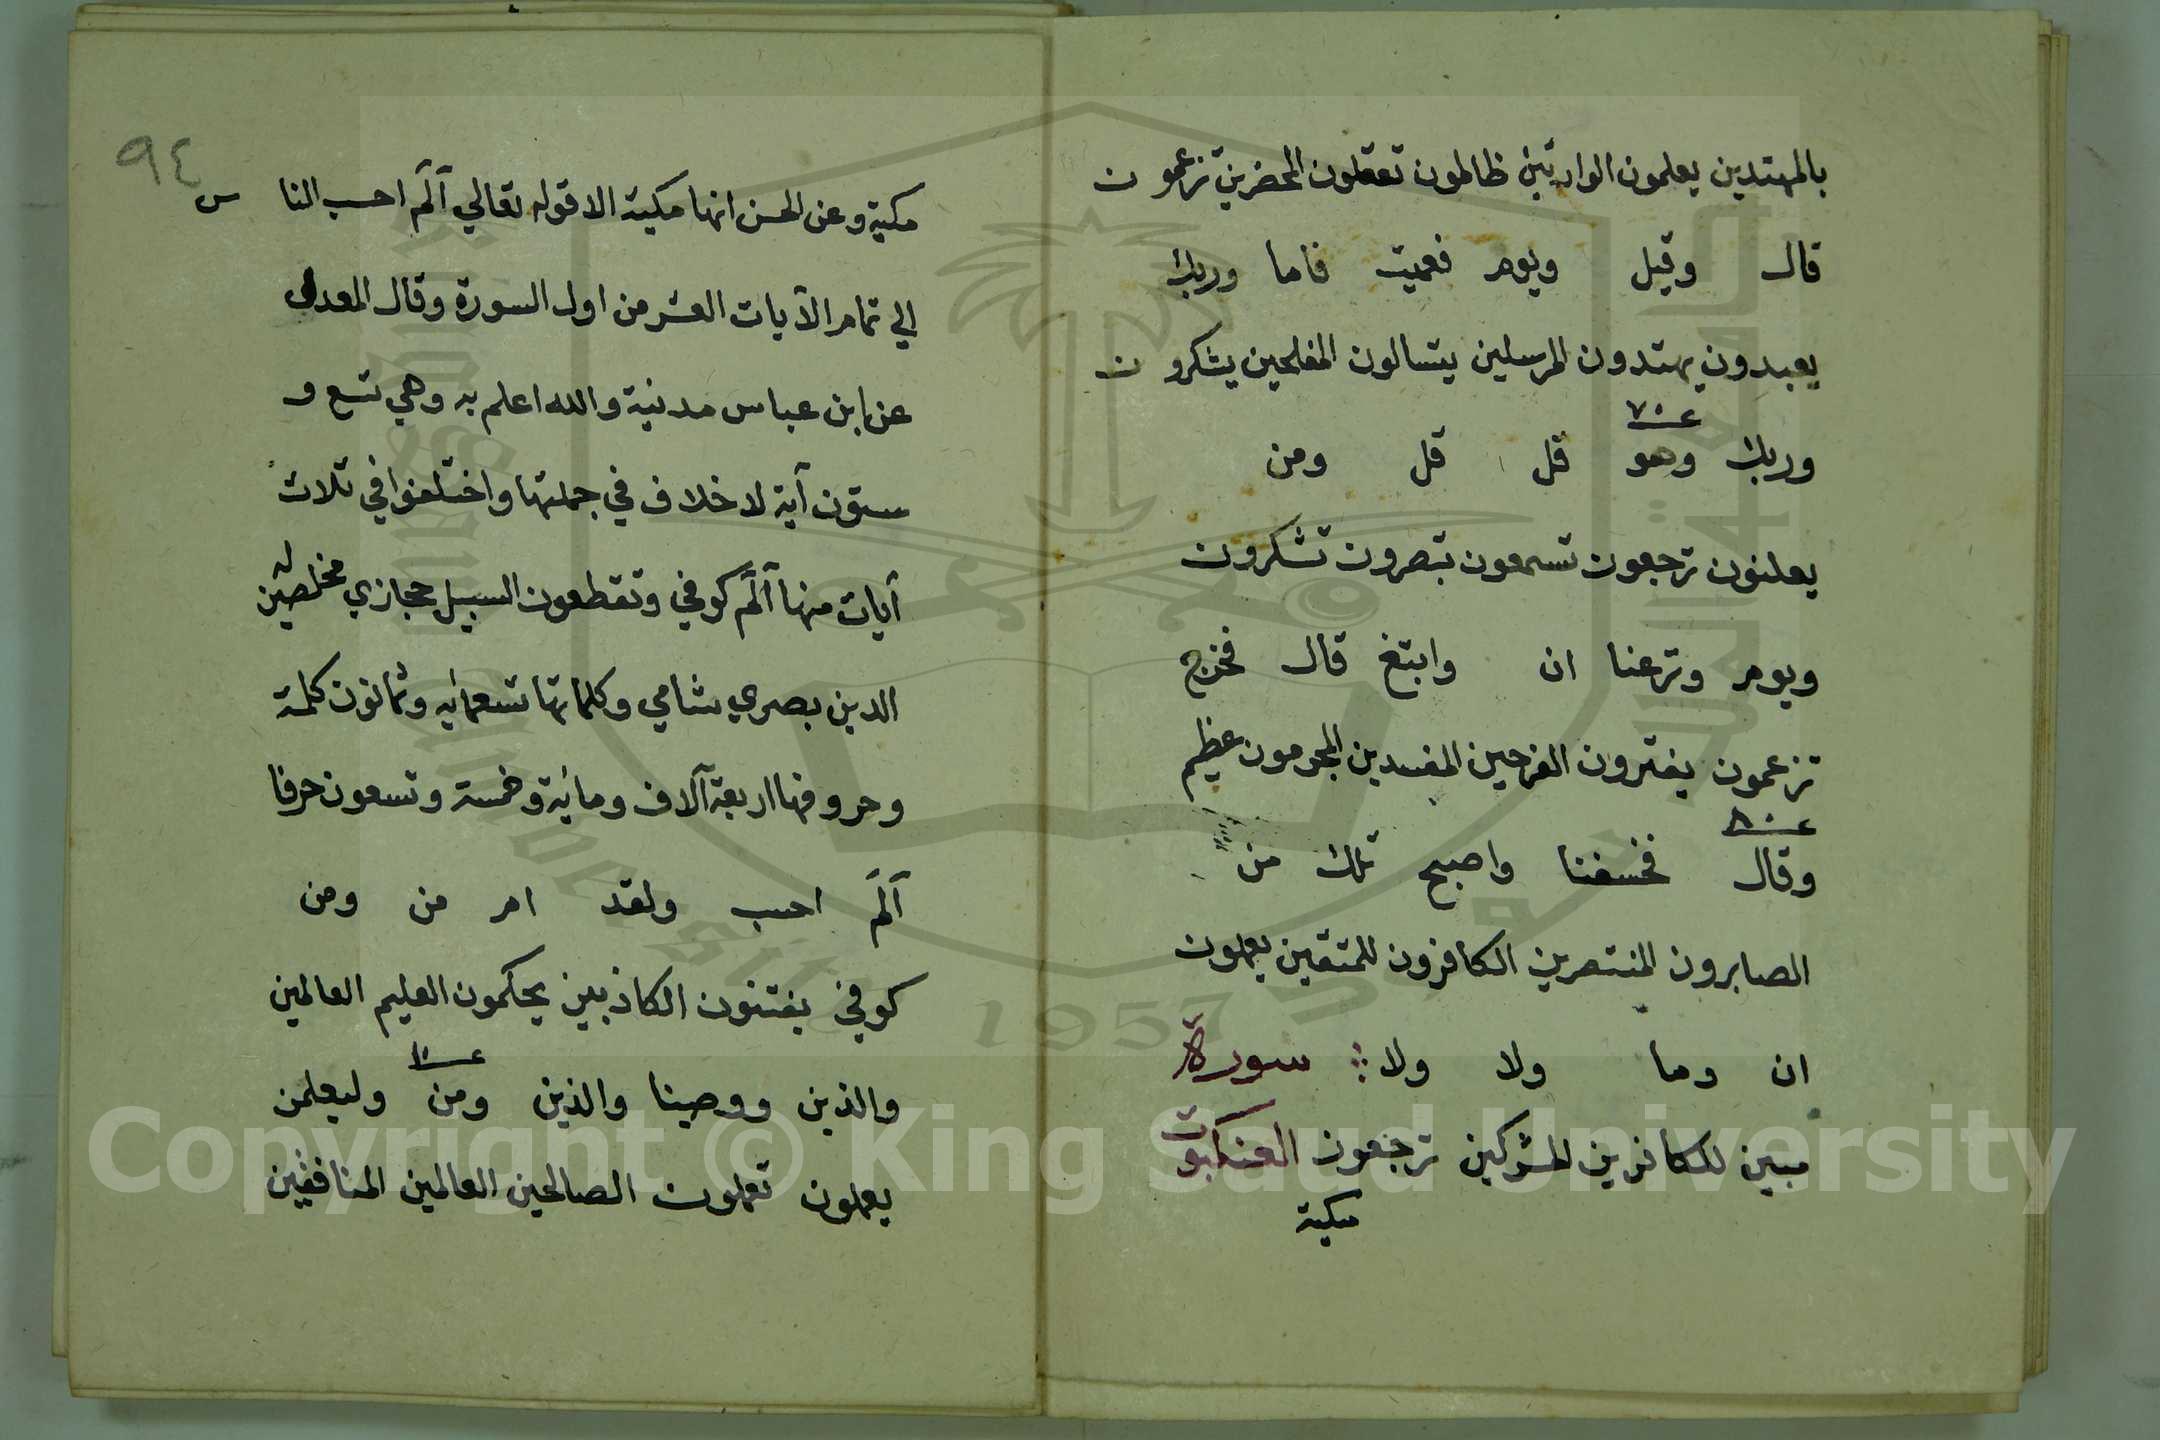 بالمهتدين يعلمون الوارثين ظالمون تعقلون المحضرين تزعمون
قال وقيل ويوم فعميت فاما وربك
يعبدون يهتدون المرسلين يتسالون المفلحين يشركون
عـ ٧٠
وربك وهو قل قل ومن
يعلنون ترجعون تسمعون تبصرون تشكرون
ويوم ونزعنا ان وابتغ قال فخرج
تزعمون يفترون الفرحين المفسدين المجرمون عظيم
عـ ٨٠
وقال فخسفنا واصبح تلك من
الصابرون المنتصرين الكافرون للمتقين يعملون
ان وما ولا ولا سورة
مبين للكافرين المشركين ترجعون العنكبوت
مكية
٩٤
مكية وعن الحسن انها مكية الا قوله تعالي آلم احسب الناس
الي تمام الآيات العشر من اول السورة وقال المعدل
عن ابن عباس مدنية والله اعلم به وهي تسع و
ستون آية لا خلاف في جملتها واختلفوا في ثلاث
آيات منها آلم كوفي وتقطعون السبيل حجازي مخلصين له
الدين بصري شامي وكلماتها تسعمائه وثمانون كلمة
وحروفها اربعة آلاف ومائة وخمسة وتسعون حرفا
آلم احسب ولقد ام من ومن
كوفي يفتنون الكاذبين يحكمون العليم العالمين
عـ ١٠
والذين ووصينا والذين ومن وليعلمن
يعملون تعملون الصالحين العالمين المنافقين
King Saud University
1957
Copyright © King Saud University